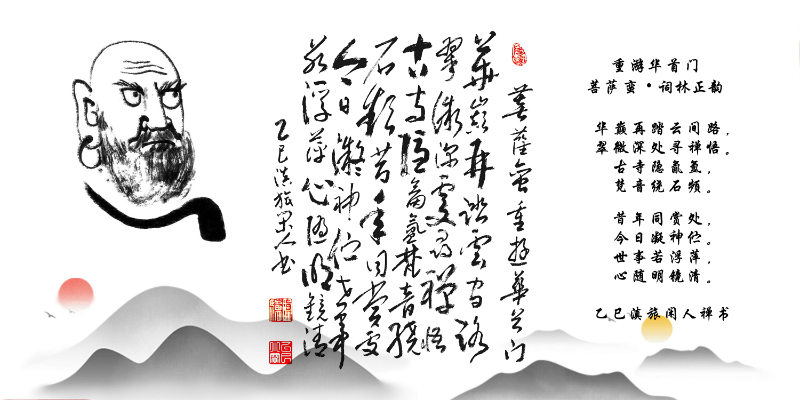 重游华首门
菩萨蛮·词林正韵
华巅再踏云间路，
翠微深处寻禅悟。
古寺隐氤氲，
梵音绕石频。
昔年同赏处，
今日凝神伫。
世事若浮萍，
心随明镜清。
乙巳滇旅闲人禅书
菩萨蛮重游华首门
华巅再踏云间路
翠微深处寻禅悟
古寺隐氤氲梵音绕
石频昔年同赏处
今日凝神伫世事
若浮萍心随明镜清
乙巳滇旅闲人书